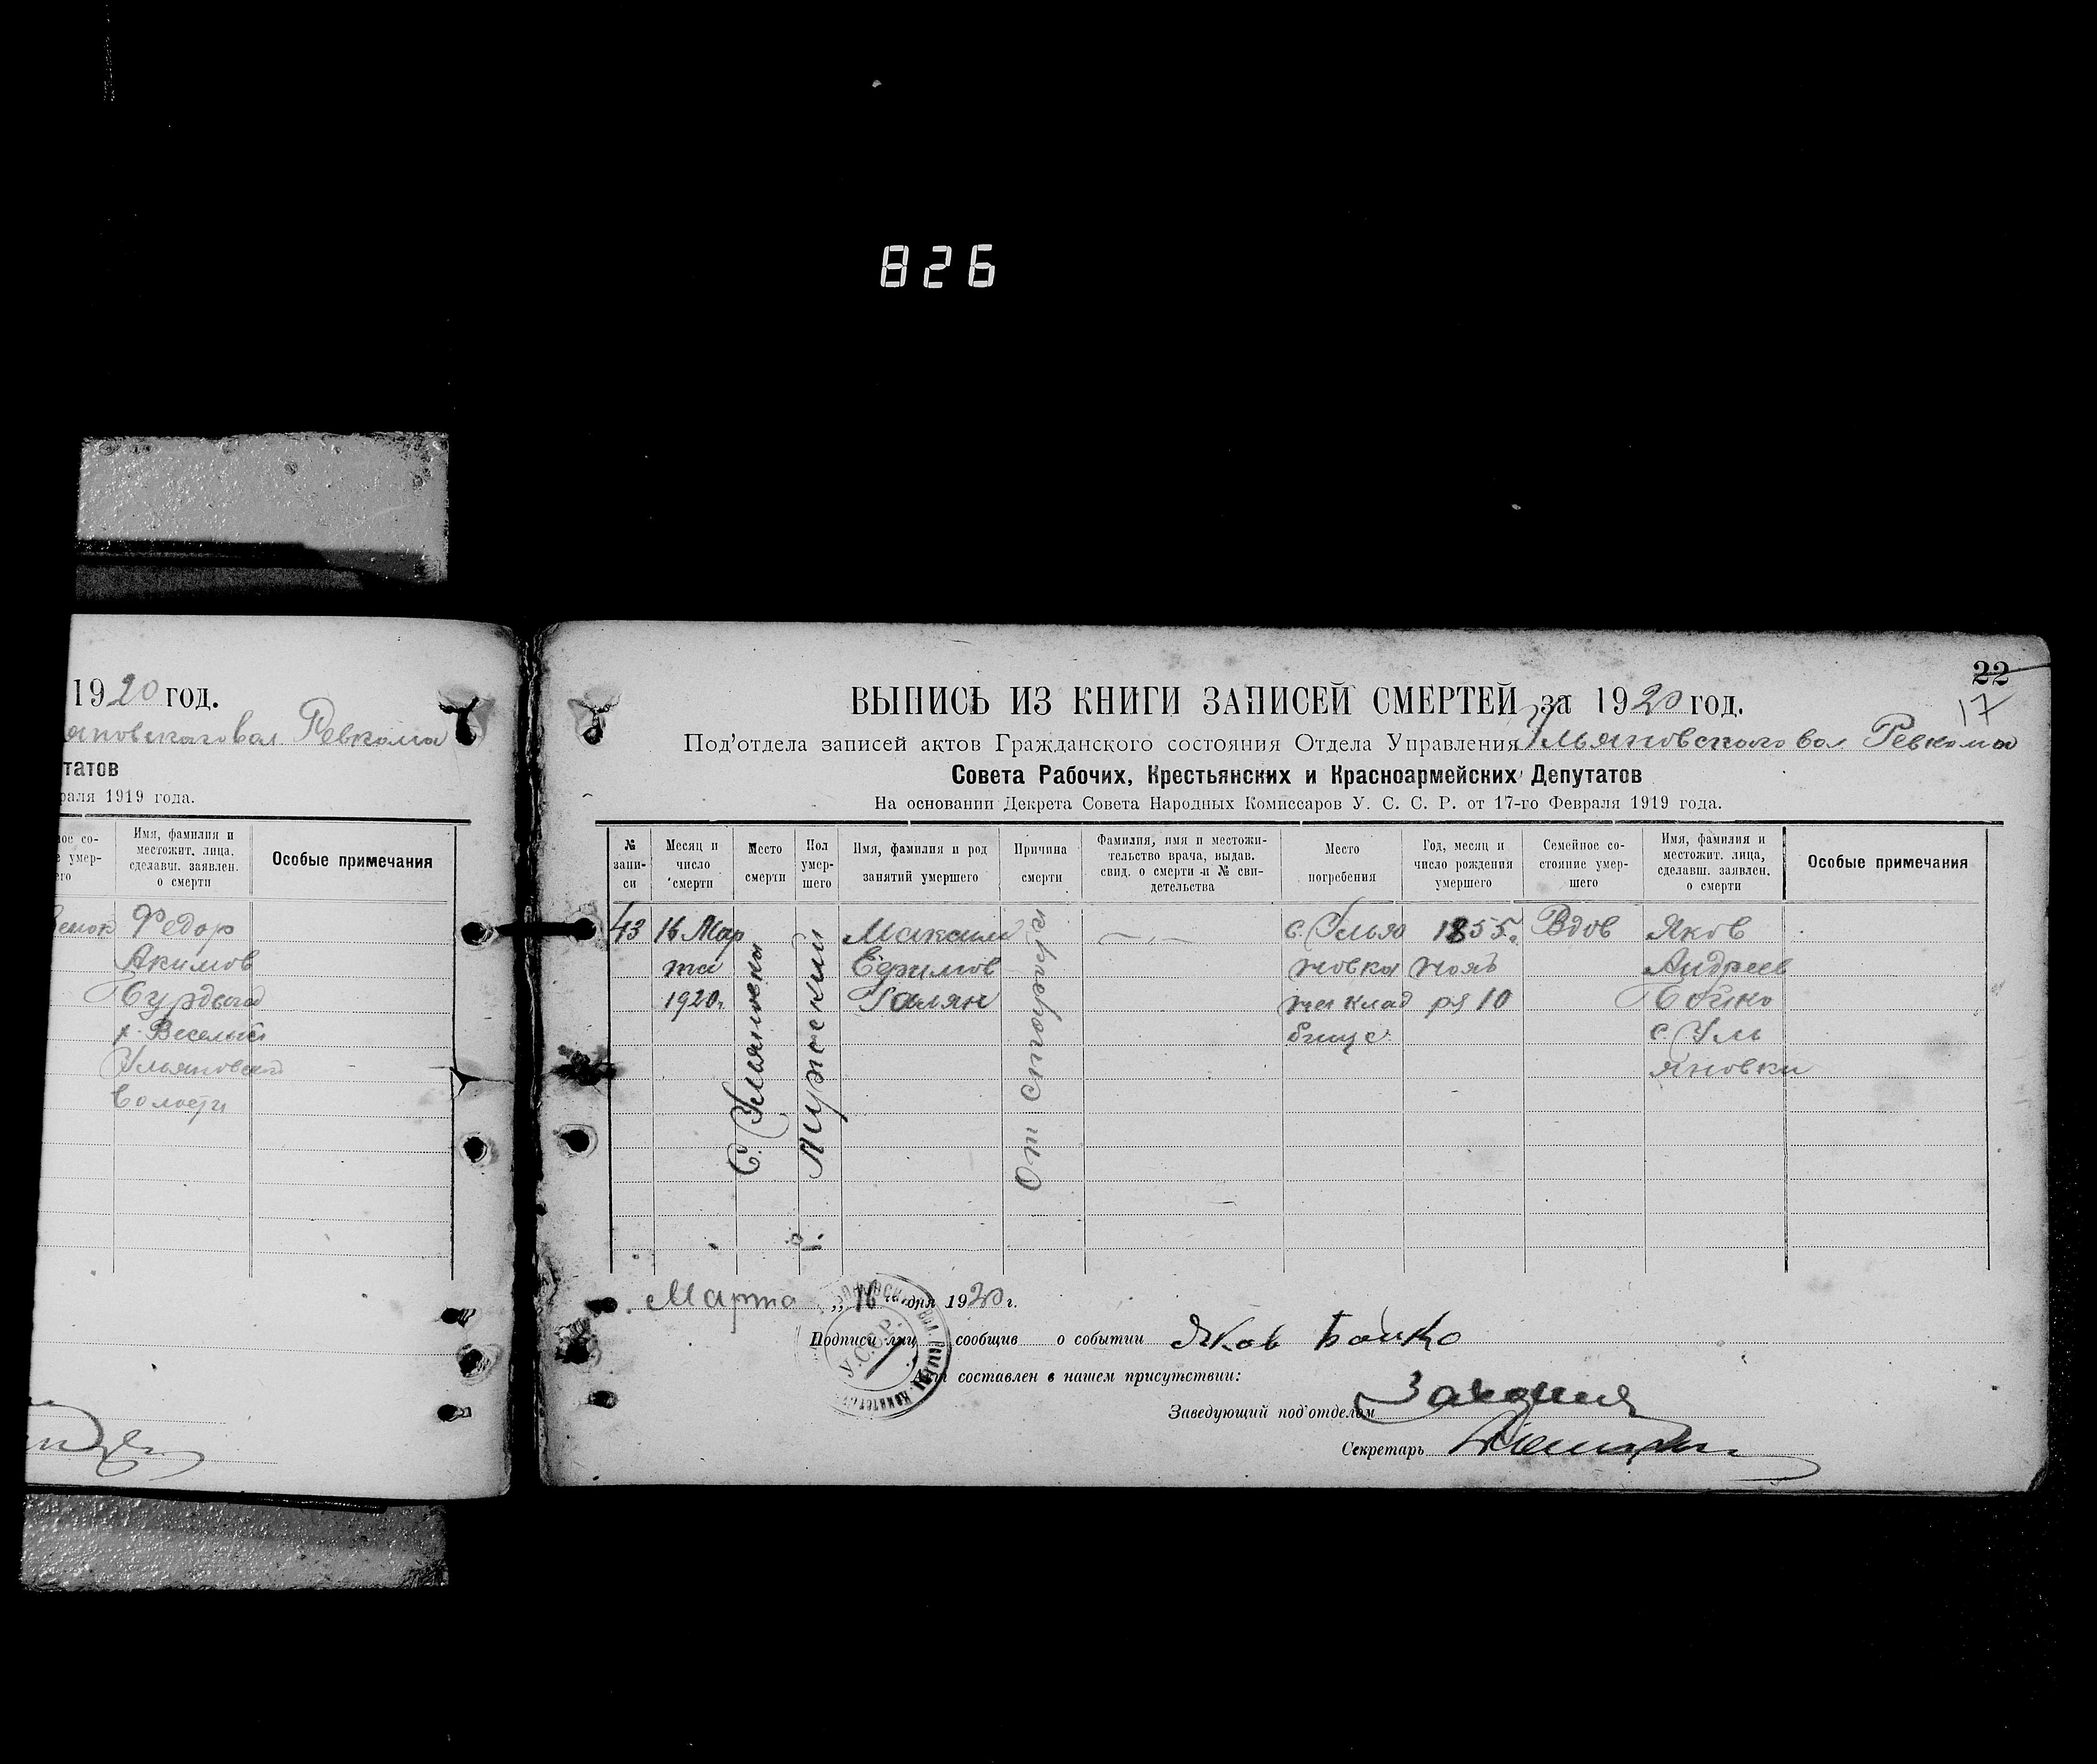 826
1920 год.
яновскаго вол Ревкома
татов
раля 1919 года.
ное со-
е умер-
его
Имя, фамилия и
местожит. лица,
сделавш. заявлен.
о смерти
Особые примечания
Федор
Акимов
х. Веселый
Ульяновской
Волости
22
17
ВЫПИСЬ ИЗ КНИГИ ЗАПИСЕЙ СМЕРТЕЙ за 1920 год.
Под'отдела записей актов Гражданского состояния Отдела Управления Ульяновского вол Ревкома
Совета Рабочих, Крестьянских и Красноармейских Депутатов
На основании Декрета Совета Народных Комиссаров У. С. С. Р. от 17-го Февраля 1919 года.
№
запи-
си
Месяц и
число
смерти
Место
смерти
Пол
умер-
шего
Имя, фамилия и род
занятий умершего
Причина
смерти
Фамилия, имя и местожи-
тельство врача, выдав.
свид. о смерти и № сви-
детельства
Место
погребения
Год, месяц и
число рождения
умершего
Семейное со-
стояние умер-
шего
Имя, фамилия и
местожит. лица,
сделавш. заявлен.
о смерти
Особые примечания
43
16 Мар
та
1920г.
С. Уляновка
Мужеский
Максим
Ефимов
Галян
От
с. Улья
новка
на клад
бище
1855г.
нояб
ря 10
Вдов
Яков
Андреев
Бойко
с. Уль
яновки
Марта „16“ дня 1920 г.
Подписи лиц сообщив о событии Яков Бойко
У.С.С.Р.
Акт составлен в нашем присутствии:
Заведующий под'отделом
Секретарь